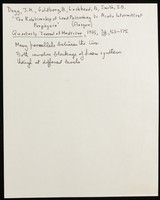 Dagg, J.H., Goldberg, A., Lochhead, A, Smith, J.A.
"The Relationship of Lead Poisoning to Acute Intermittent
Porphyria" (Glasgow)
Quarterly Journal of Medicine, 1965, 34, 163-175
Many parallels between the two.
Both involve blockage of heme synthesis
though at different levels